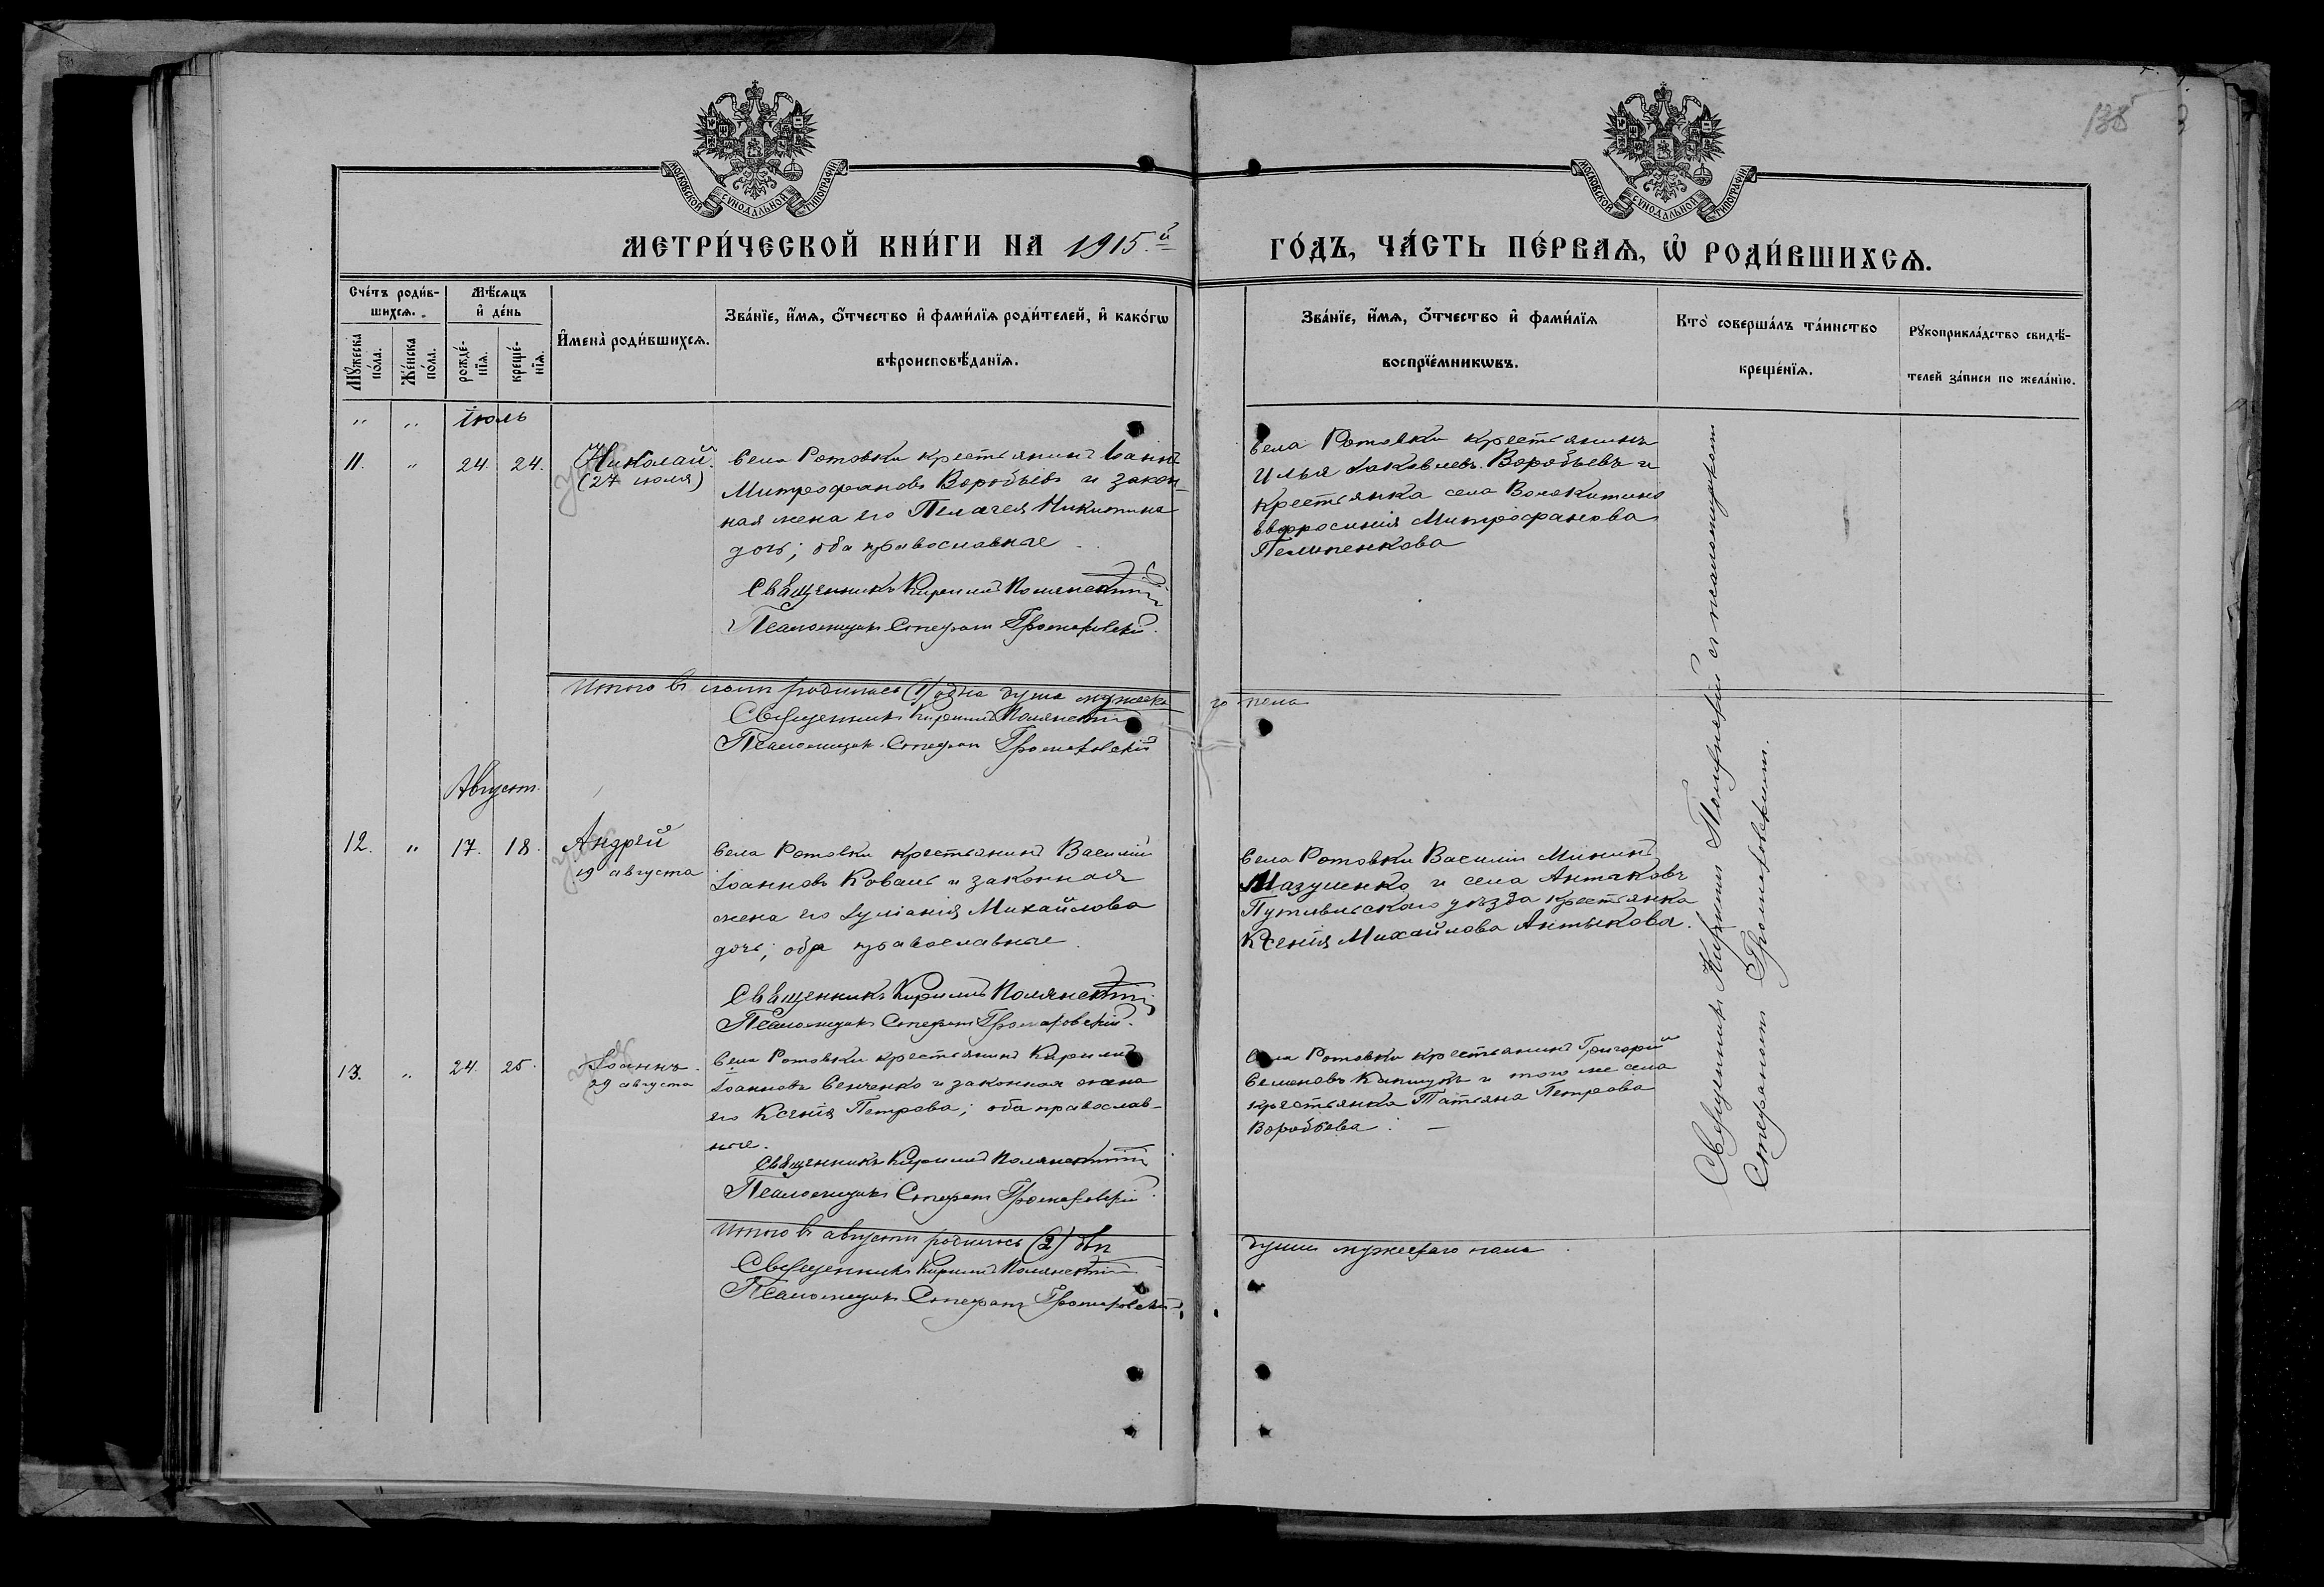 135
МОСКОВСКОЙ СѴНОДАЛЬНОЙ ТИПОГРАФІИ
МОСКОВСКОЙ СѴНОДАЛЬНОЙ ТИПОГРАФІИ
МЕТРИ́ЧЕСКОЙ КНИ́ГИ НА 1915.й
ГО́ДЪ, ЧА́СТЬ ПЕ́РВАѦ, Ѽ РОДИ́ВШИХСѦ.
Сче́тъ роди́в-
шихсѧ.
Мꙋ́жеска по́ла.
Же́нска по́ла.
Мѣ́сѧцъ
и҆ де́нь
рожде́-
нїѧ.
креще́-
нїѧ.
И҆мена̀ роди́вшихсѧ.
Зва́нїе, и҆́мѧ, ѻ҆́тчество и҆ фами́лїѧ роди́телей, и҆ како́гѡ
вѣроисповѣ́данїѧ.
Зва́нїе, и҆́мѧ, ѻ҆́тчество и҆ фами́лїѧ
воспрїе́мникѡвъ.
Кто̀ соверша́лъ та́инство
креще́нїѧ.
Рꙋкоприкла́дство свидѣ́-
телей за́писи по жела́нїю.
" " Іюль
11. " 24. 24.
Николай.
(27 июля)
Села Ротовки крестьянинъ Іоаннъ
Митрофановъ Воробьевъ и закон-
ная жена его Пелагея Никитина
дочь; оба православные
Священникъ Кириллъ Полянскій
Псаломщикъ Стефанъ Громаковскій
Села Ротовки крестьянинъ
Илья Іаковлевъ Воробьевъ и
крестьянка села Волокитино
Евфросинія Митрофанова
Пелипенкова
Итого въ іюлѣ родилось (1) одна душа мужеска
го пола
Священникъ Кириллъ Полянскій
Псаломщикъ Стефанъ Громаковскій
Августъ.
12. " 17. 18.
Андрей
19 августа
Села Ротовки крестьянинъ Василій
Іоанновъ Коваль и законная
жена его Іуліанія Михайлова
дочь; оба православные
Священникъ Кириллъ Полянскій
Псаломщикъ Стефанъ Громаковскій.
Села Ротовки Василій Мининъ
Мазуленко и села Антыковъ
Путивльскаго уѣзда крестьянка
Ксенія Михайлова Антыкова.
13. " 24. 25.
Іоаннъ.
29 августа
Села Ротовки крестьянинъ Кириллъ
Іоанновъ Сенченко и законная жена
его Ксенія Петрова; оба православ-
ные.
Священникъ Кириллъ Полянскій
Псаломщикъ Стефанъ Громаковскій.
Села Ротовки крестьянинъ Григорій
Семеновъ и того же села
крестьянка Татьяна Петрова
Воробьева. —
Итого въ августѣ родилось (2) двѣ
души мужескаго пола
Священникъ Кириллъ Полянскій
Псаломщикъ Стефанъ Громаковскій
Священникъ Кириллъ съ псаломщикомъ
Стефаномъ Громаковскимъ.